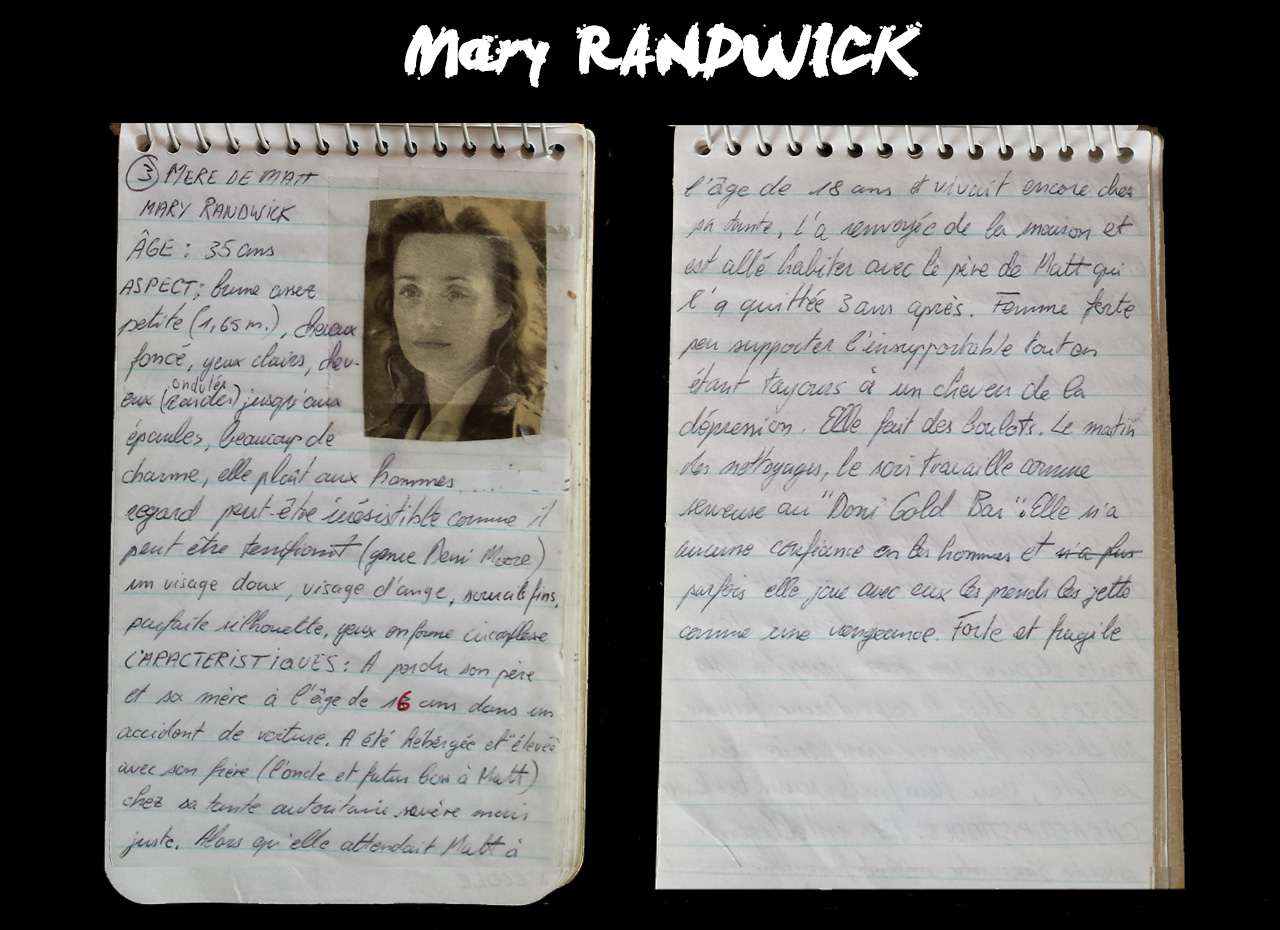 Mary RANDWICK
3 MERE DE MATT
MARY RANDWICK
ÂGE : 35 ans
ASPECT : brune assez
petite (1,65 m.), cheveux
foncé, yeux clairs, chev-
ondulés
eux (raides) jusqu'aux
épaules, beaucoup de
charme, elle plaît aux hommes....
regard peut-être irrésistible comme il
peut être terrifiant (genre Demi Moore)
un visage doux, visage d'ange, sourcils fins,
parfaite silhouette, yeux en forme circonflexe
CARACTERISTIQUES : A perdu son père
et sa mère à l'âge de 16 ans dans un
accident de voiture. A été hébergée et élevée
avec son frère (l'oncle et futur boss à Matt)
chez sa tante autoritaire sévère mais
juste. Alors qu'elle attendait Matt à
l'âge de 18 ans et vivait encore chez
sa tante, l'a renvoyée de la maison et
est allé habiter avec le père de Matt qui
l'a quittée 3 ans après. Femme forte
peu supporter l'insupportable tout en
étant toujours à un cheveu de la
dépression. Elle fait des boulots. Le matin
des nettoyages, le soir travaille comme
serveuse au "Doni Gold Bar". Elle n'a
aucune confiance en les hommes et n'a plus
parfois elle joue avec eux les prends les jette
comme une vengeance. Forte et fragile